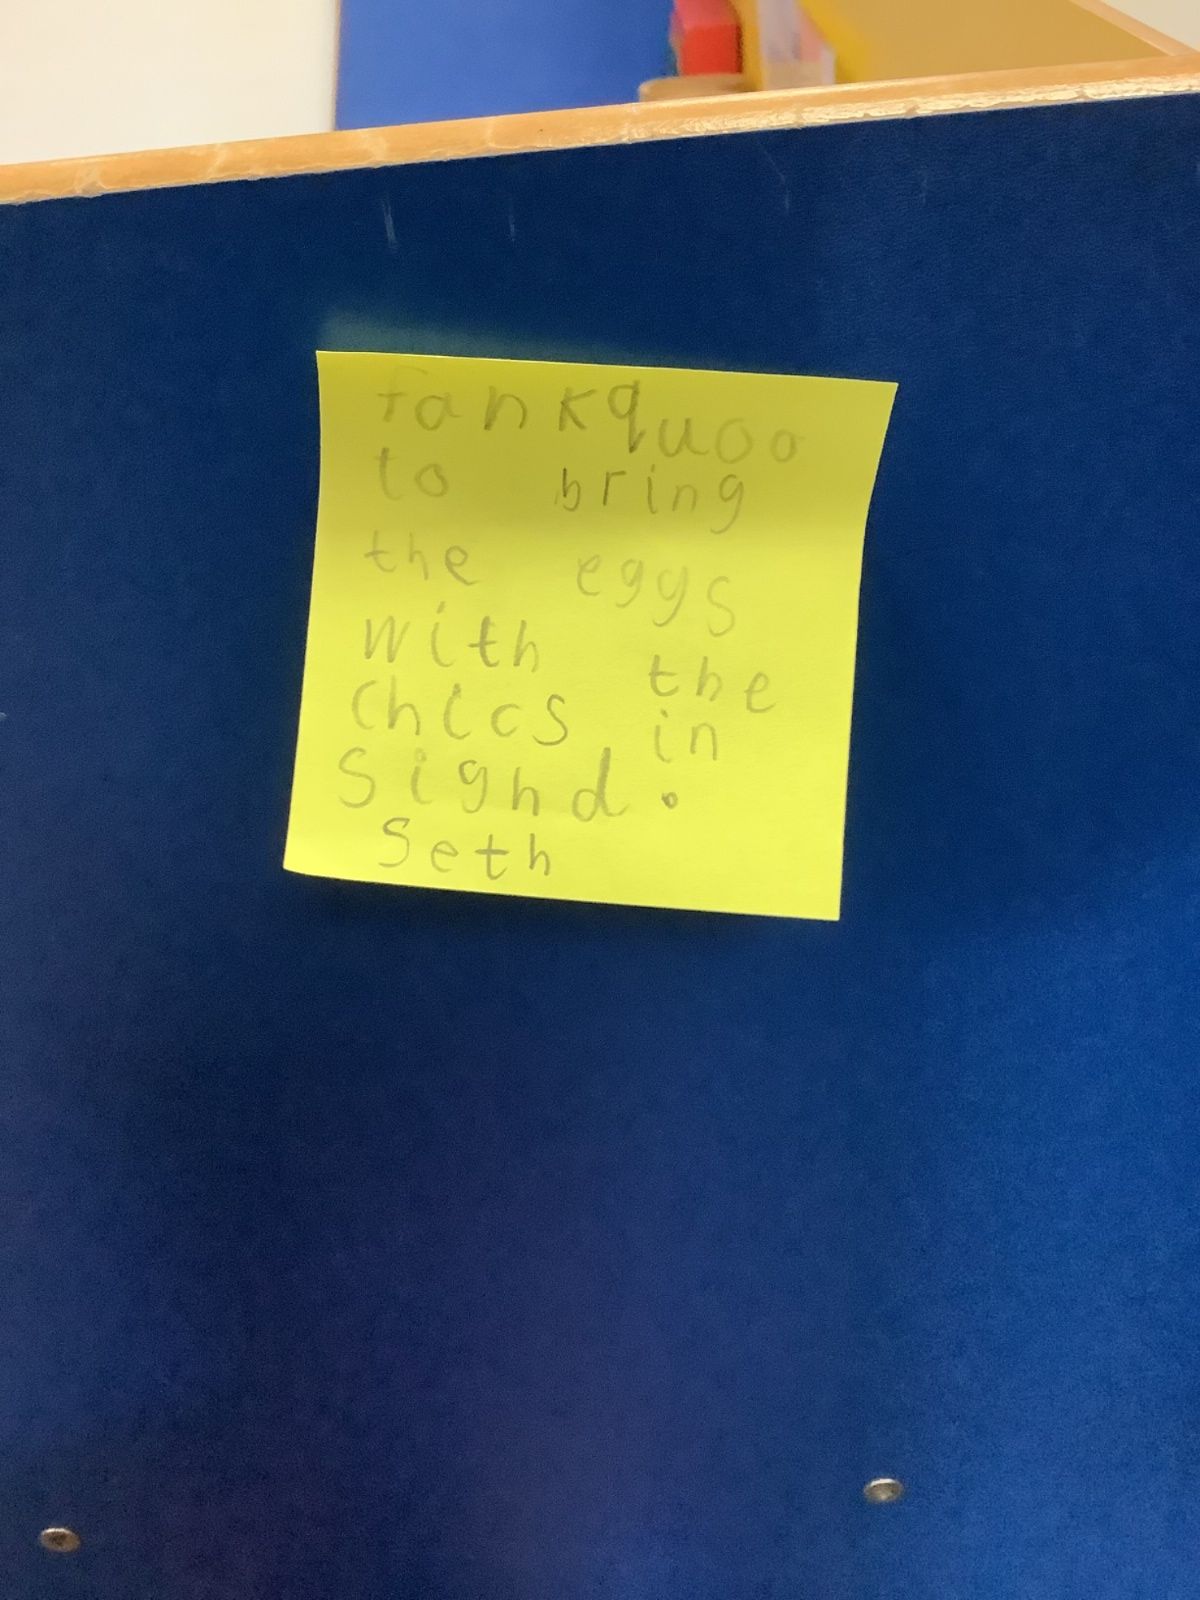 fankquoo
to bring
the eggs
with the
chics in
sighd.
Seth